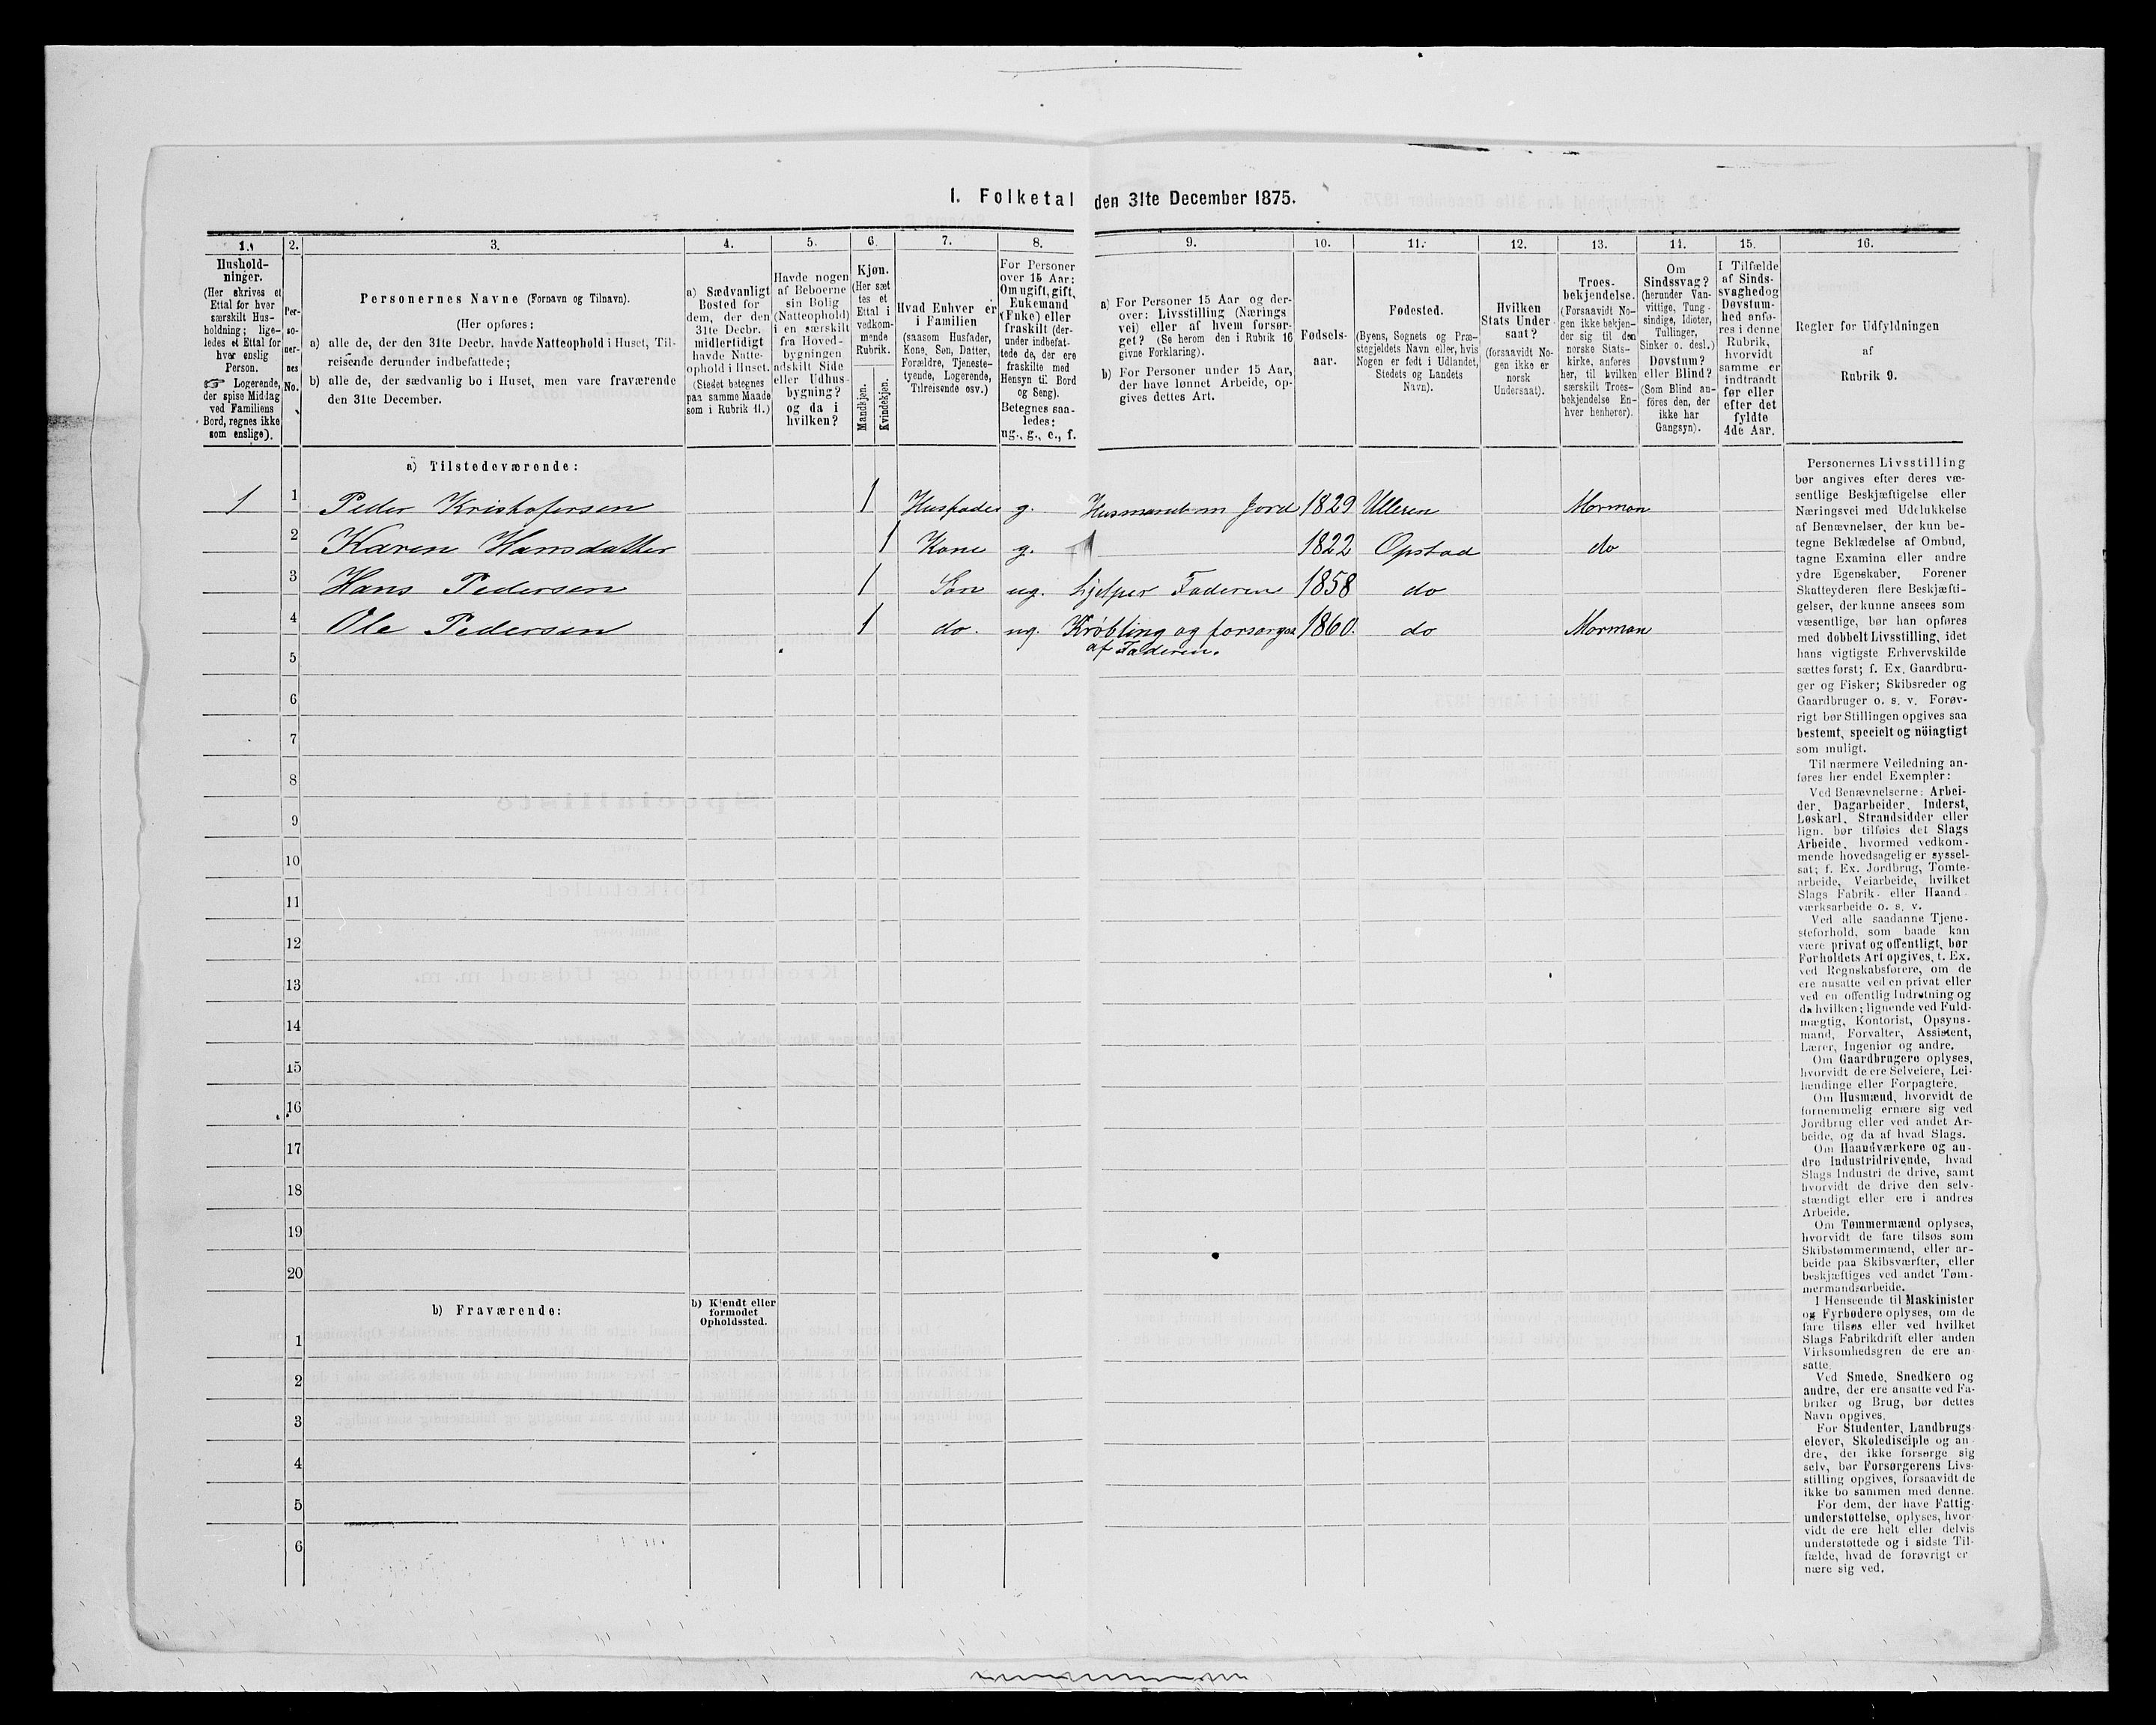 1. Folketal den 31te December 1875.
1. 2. 3. 4. 5. 6. 7. 8. 9. 10. 11. 12. 13. 14. 15. 16.
Hushold-
ninger.
(Her skrives et
Ettal for hver
særskilt Hus-
holdning; lige-
ledes et Ettal for
hver enslig
Person.
☞ Logerende,
der spise Middag
ved Familiens
Bord, regnes ikke
som enslige).
Per-
so-
ner-
nes
No.
Personernes Navne (Fornavn og Tilnavn).
(Her opføres:
a) alle de, der den 31te Decbr. havde Natteophold i Huset, Til-
reisende derunder indbefattede;
b) alle de, der sædvanlig bo i Huset, men vare fraværende
den 31te December.
a) Sædvanligt
Bosted for
dem, der den
31te Decbr.
midlertidigt
havde Natte-
ophold i Huset.
(Stedet betegnes
paa samme Maade
som i Rubrik 11.)
Havde nogen
af Beboerne
sin Bolig
(Natteophold)
i en særskilt
fra Hoved-
bygningen
adskilt Side
eller Udhus-
bygning?
og da i
hvilken?
Kjøn.
(Her sæt
tes et
Ettal i
vedkom-
mende
Rubrik.
Mandkjøn.
Kvindekjøn.
Hvad Enhver er
i Familien
(saasom Husfader,
Kone, Søn, Datter,
Forældre, Tjeneste-
tyende, Logerende,
Tilreisende osv.)
For Personer
over 15 Aar:
Om ugift, gift,
Enkemand
(Enke) eller
fraskilt (der-
under indbefat-
tede de, der ere
fraskilte med
Hensyn til Bord
og Seng).
Betegnes saa-
ledes:
ug., g., e., f.
a) For Personer 15 Aar og der-
over: Livsstilling (Nærings
vei) eller af hvem forsør-
get? (Se herom den i Rubrik 16
givne Forklaring).
b) For Personer under 15 Aar,
der have lønnet Arbeide, op-
gives dettes Art.
Fødsels-
aar.
Fødested.
(Byens, Sognets og Præ-
stegjeldets Navn eller, hvis
Nogen er født i Udlandet,
Stedets og Landets
Navn).
Hvilken
Stats Under-
saat?
(forsaavidt No-
gen ikke er
norsk
Undersaat).
Troes-
bekjendelse.
(Forsaavidt No-
gen ikke bekjen-
der sig til den
norske Stats-
kirke, anføres
her, til hvilken
særskilt Troes-
bekjendelse En-
hver henhører).
Om
Sindssvag?
(herunder Van-
vittige, Tung-
sindige, Idioter,
Tullinger,
Sinker o. desl.)
Døvstum?
eller Blind?
(Som Blind an-
føres den, der
ikke har
Gangsyn).
I Tilfælde
af Sinds-
svaghed og
Døvstum-
hed anfø-
res i denne
Rubrik,
hvorvidt
samme er
indtraadt
før eller
efter det
fyldte
4de Aar.
Regler for Udfyldningen
af
Rubrik 9.
a) Tilstedeværende:
1 1 Peder Kristofersen 1 Husfader g. Husmand m Jord 1829 Ulleren Mormon
2 Karen Hansdatter 1 Kone g. 1822 Opstad do
3 Hans Pedersen 1 Søn ug. hjelper Faderen 1858 do
4 Ole Pedersen 1 do. ug. Krøbling og forsørges 1860. do Mormon
af Faderen.
5
6
7
8
9
10
11
12
13
14
15
16
17
18
19
20
b) Fraværende:
b) Kjendt eller
formodet
Opholdssted.
1
2
3
4
5
6
Personernes Livsstilling
bør angives efter deres væ-
sentlige Beskjæftigelse eller
Næringsvei med Udelukkelse
af Benævnelser, der kun be-
tegne Beklædelse af Ombud,
tagne Examina eller andre
ydre Egenskaber. Forener
Skatteyderen flere Beskjæfti-
gelser, der kunne ansees som
væsentlige, bør han opføres
med dobbelt Livsstilling, idet
hans vigtigste Erhvervskilde
sættes først; f. Ex. Gaardbru-
ger og Fisker; Skibsreder og
Gaardbruger o. s. v. Forøv-
rigt bør Stillingen opgives saa
bestemt, specielt og nöiagtigt
som muligt.
Til nærmere Veiledning an-
føres her endel Exempler:
Ved Benævnelserne: Arbei-
der, Dagarbeider, Inderst,
Løskarl, Strandsidder eller
lign. bør tilføies det Slags
Arbeide, hvormed vedkom-
mende hovedsagelig er syssel-
sat; f. Ex. Jordbrug, Tomte-
arbeide, Veiarbeide, hvilket
Slags Fabrik- eller Haand-
værksarbeide o. s. v.
Ved alle saadanne Tjene-
steforhold, som baade kan
være privat og offentligt, bør
Forholdets Art opgives, t. Ex.
ved Regnskabsførere, om de
ere ansatte ved en privat eller
ved en offentlig Indretning og
da hvilken; lignende ved Fuld-
mægtig, Kontorist, Opsyns-
mand, Forvalter, Assistent,
Lærer, Ingeniør og andre.
Om Gaardbrugere oplyses,
hvorvidt de ere Selveiere, Lei-
lændinge eller Forpagtere.
Om Husmænd, hvorvidt de
fornemmelig ernære sig ved
Jordbrug eller ved andet Ar-
beide, og da af hvad Slags.
Om Haandværkere og an-
dre Industridrivende, hvad
Slags Industri de drive, samt
hvorvidt de drive den selv-
stændigt eller ere i andres
Arbeide.
Om Tømmermænd oplyses,
hvorvidt de fare tilsøs som
Skibstømmermænd, eller ar-
beide paa Skibsværfter, eller
beskjæftiges ved andet Tøm-
mermandsarbeide.
I Henseende til Maskinister
og Fyrbødere oplyses, om de
fare tilsøs eller ved hvilket
Slags Fabrikdrift eller anden
Virksomhedsgren de ere an-
satte.
Ved Smede, Snedkere og
andre, der ere ansatte ved Fa-
briker og Brug, bør dettes
Navn opgives.
For Studenter, Landbrugs
elever, Skoledisciple og an-
dre, der ikke forsørge sig
selv, bør Forsørgerens Livs-
stilling opgives, forsaavidt de
ikke bo sammen med denne.
For dem, der have Fattig-
understøttelse, oplyses, hvor-
vidt de ere helt eller delvis
understøttede og i sidste Til-
fælde, hvad de forøvrigt er
nære sig ved.